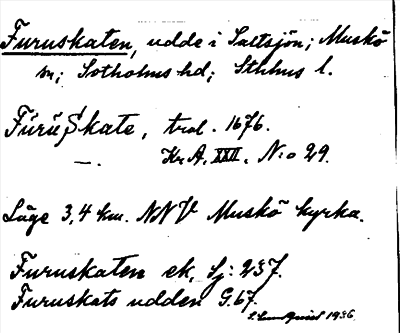 Furuskaten, udde i Saltsjön; Muskö
sn; Sotholms hd; Sthlms l.
Fúrú Skate, trol. 1676.
—. Kr. A. XXII. No 29.
Läge 3,4 km. NNV Muskö kyrka.
Furuskaten ek, Sj: 237.
Furuskats udden G. 67.
1936